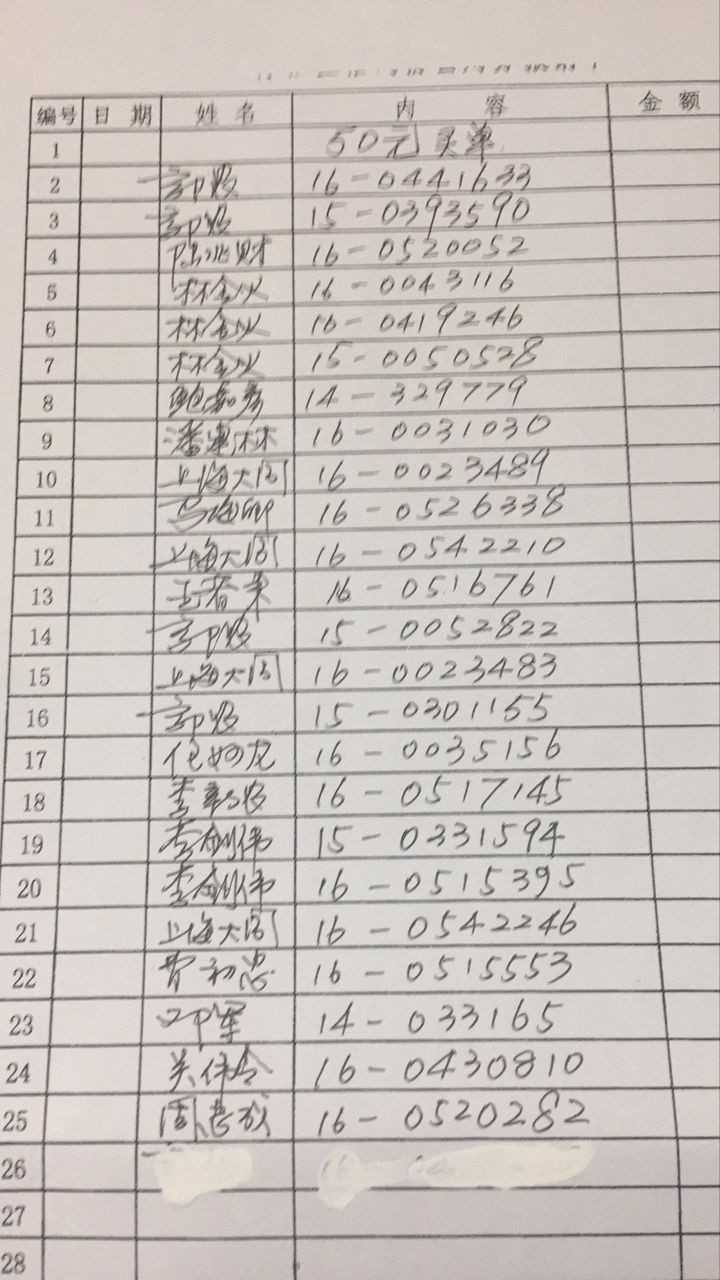 编号 日期 姓名 内容 金额
1 50元买单
2 16-0441633
3 15-0393590
4 16-0520052
5 林金火 16-0043116
6 林金火 16-0419246
7 林金火 15-0050528
8 14-329779
9 潘惠林 16-0031030
10 上海大闵 16-0023489
11 16-0526338
12 上海大闵 16-0542210
13 16-0516761
14 15-0052822
15 上海大闵 16-0023483
16 15-0301155
17 16-0035156
18 16-0517145
19 李剑伟 15-0331594
20 李剑伟 16-0515395
21 上海大闵 16-0542246
22 16-0515553
23 14-033165
24 16-0430810
25 16-0520282
26
27
28